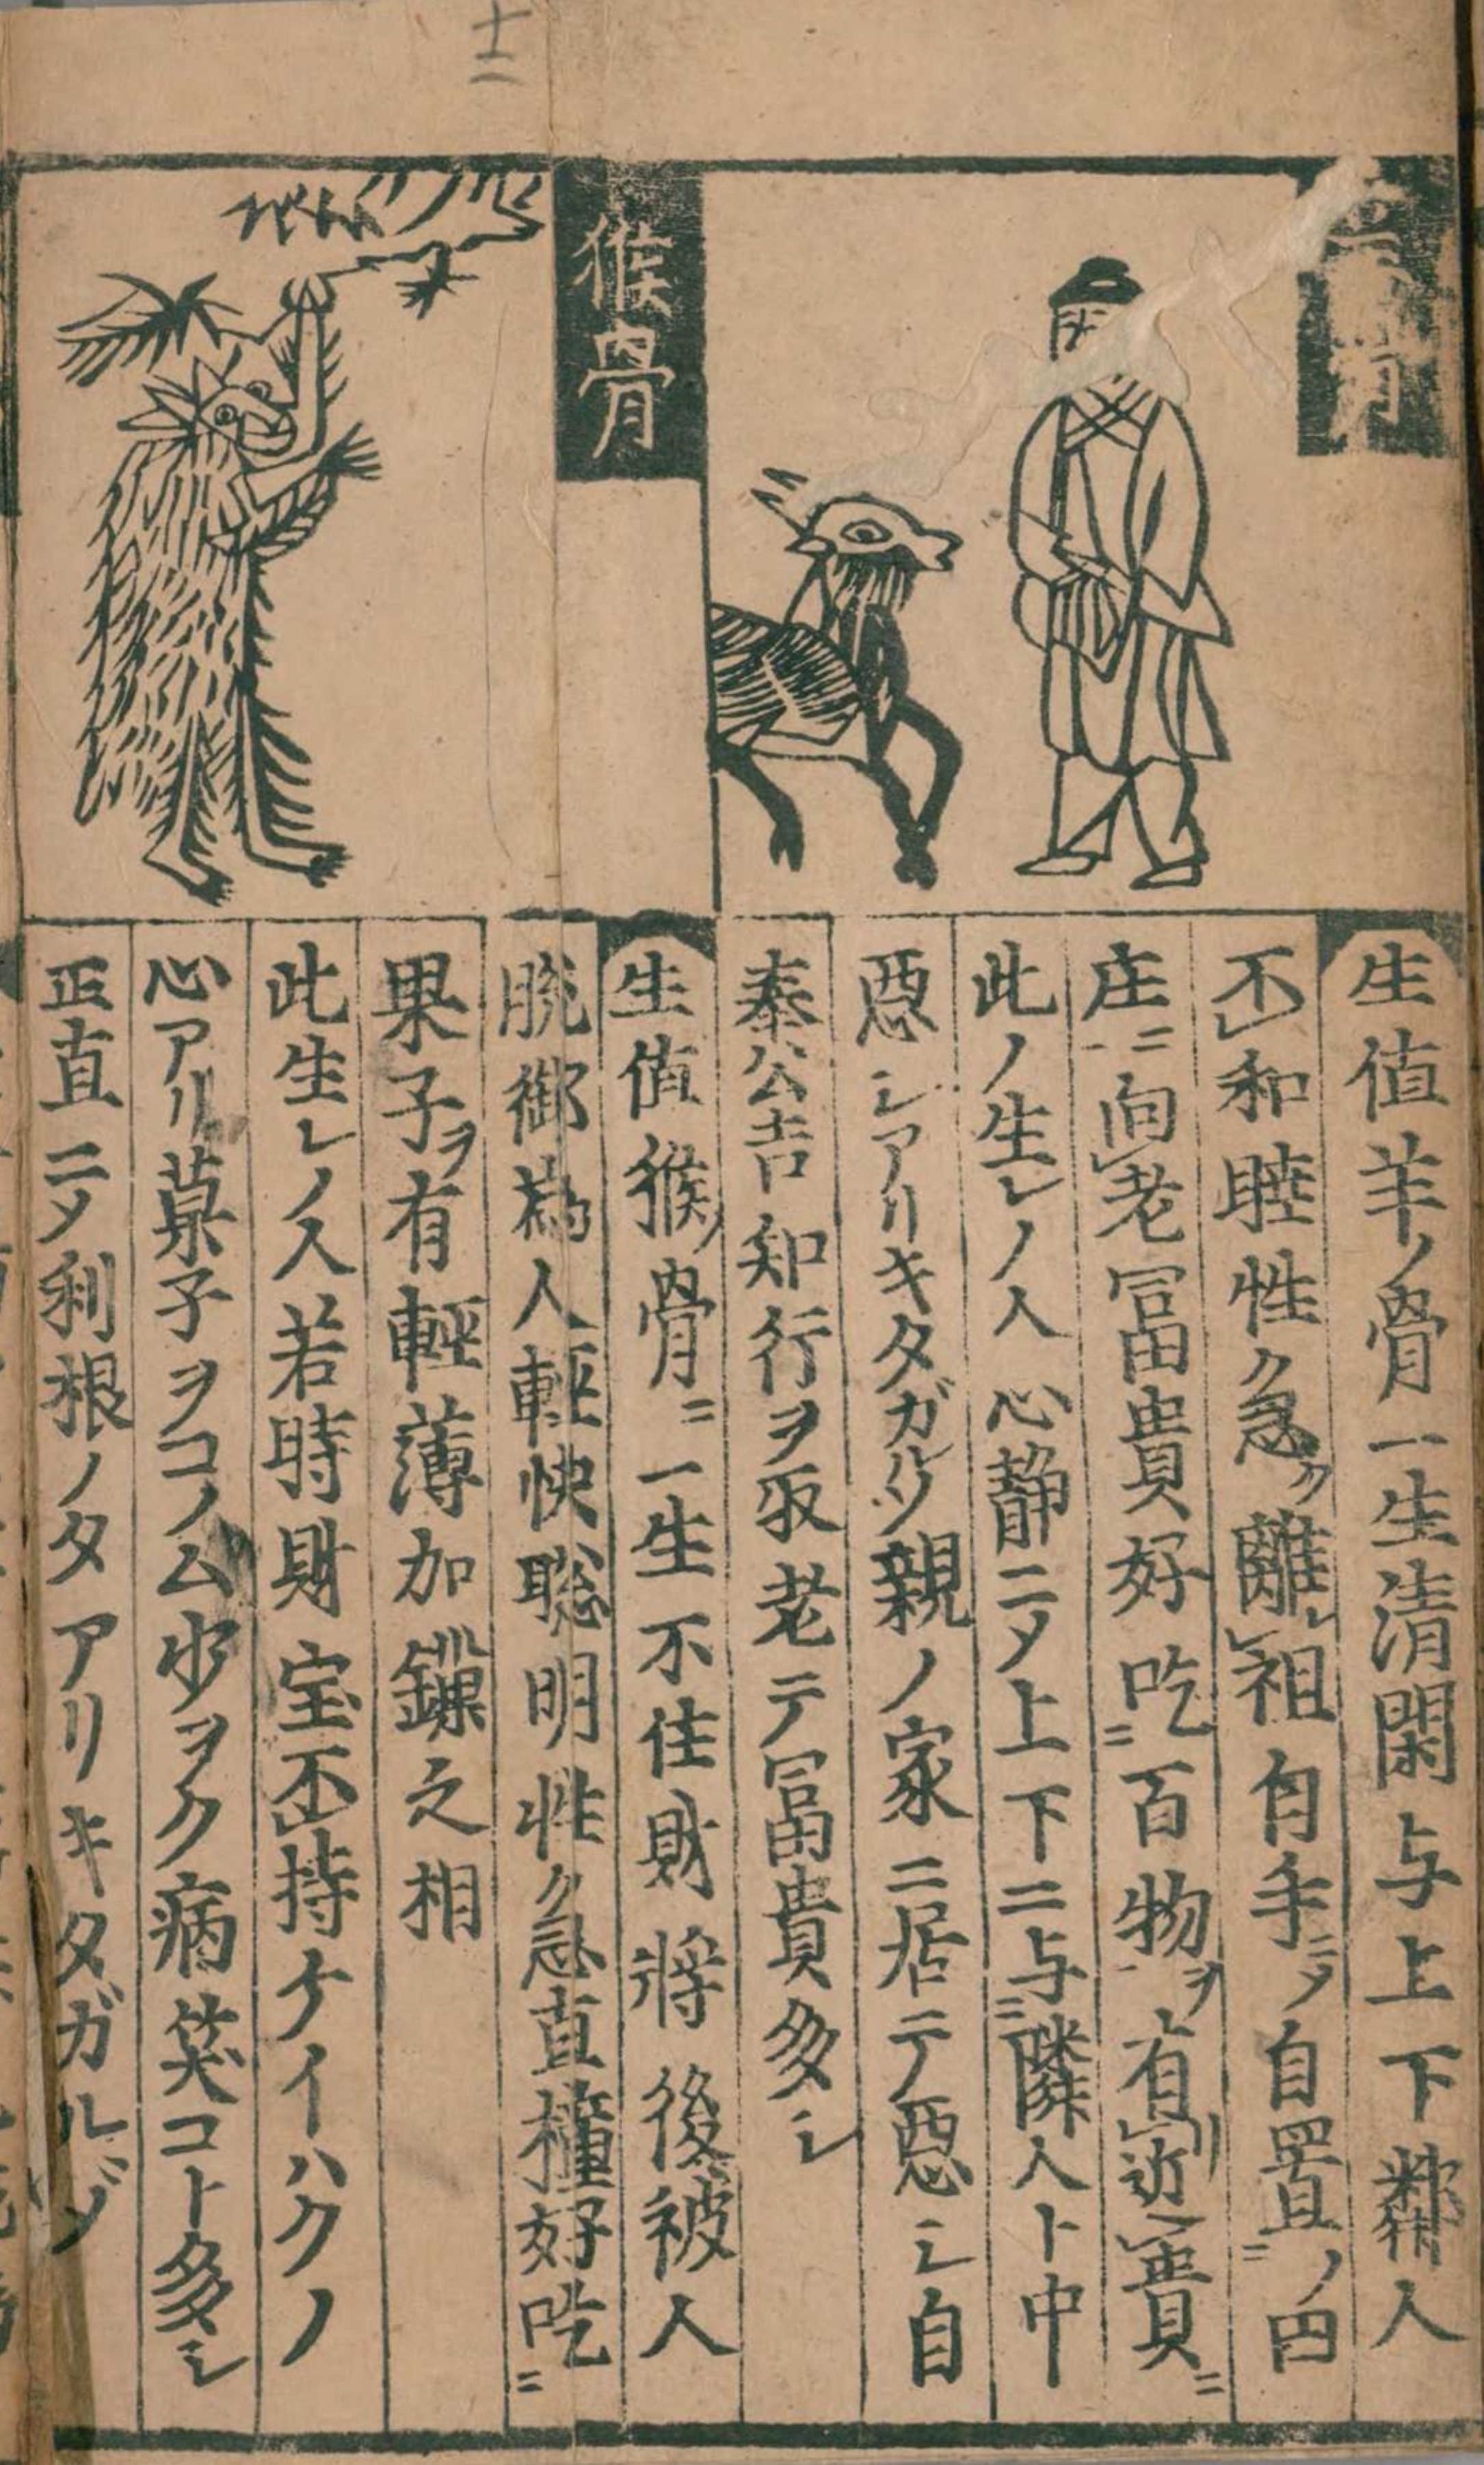 十二
羊骨
生值羊ノ骨一生清閑与上下鄰人
不レ和睦性ク急ク離レ祖自手ニメ自置ニノ田
庄一ニ向レ老冨貴好吃ニ百物一ヲ有リレ近レ貴ニ
此ノ生レノ人心静ニメ上下ニ与ニ隣人ト中
悪シアリキタガルソ親ノ家ニ居テ悪シ自
奉公吉知行ヲ取老テ冨貴多シ
猴骨
生值猴ノ骨ニ一生不住財將後被人
脱御為人軽快聡明性ク急直撞好吃ニ
果子ヲ有輕薄加鏁之相
此生レノ人若時財宝不レ持ケイハクノ
心アリ菓子ヲコノム少ヲク病笑コト多シ
正直ニメ利根ノタアリキタガルゾ